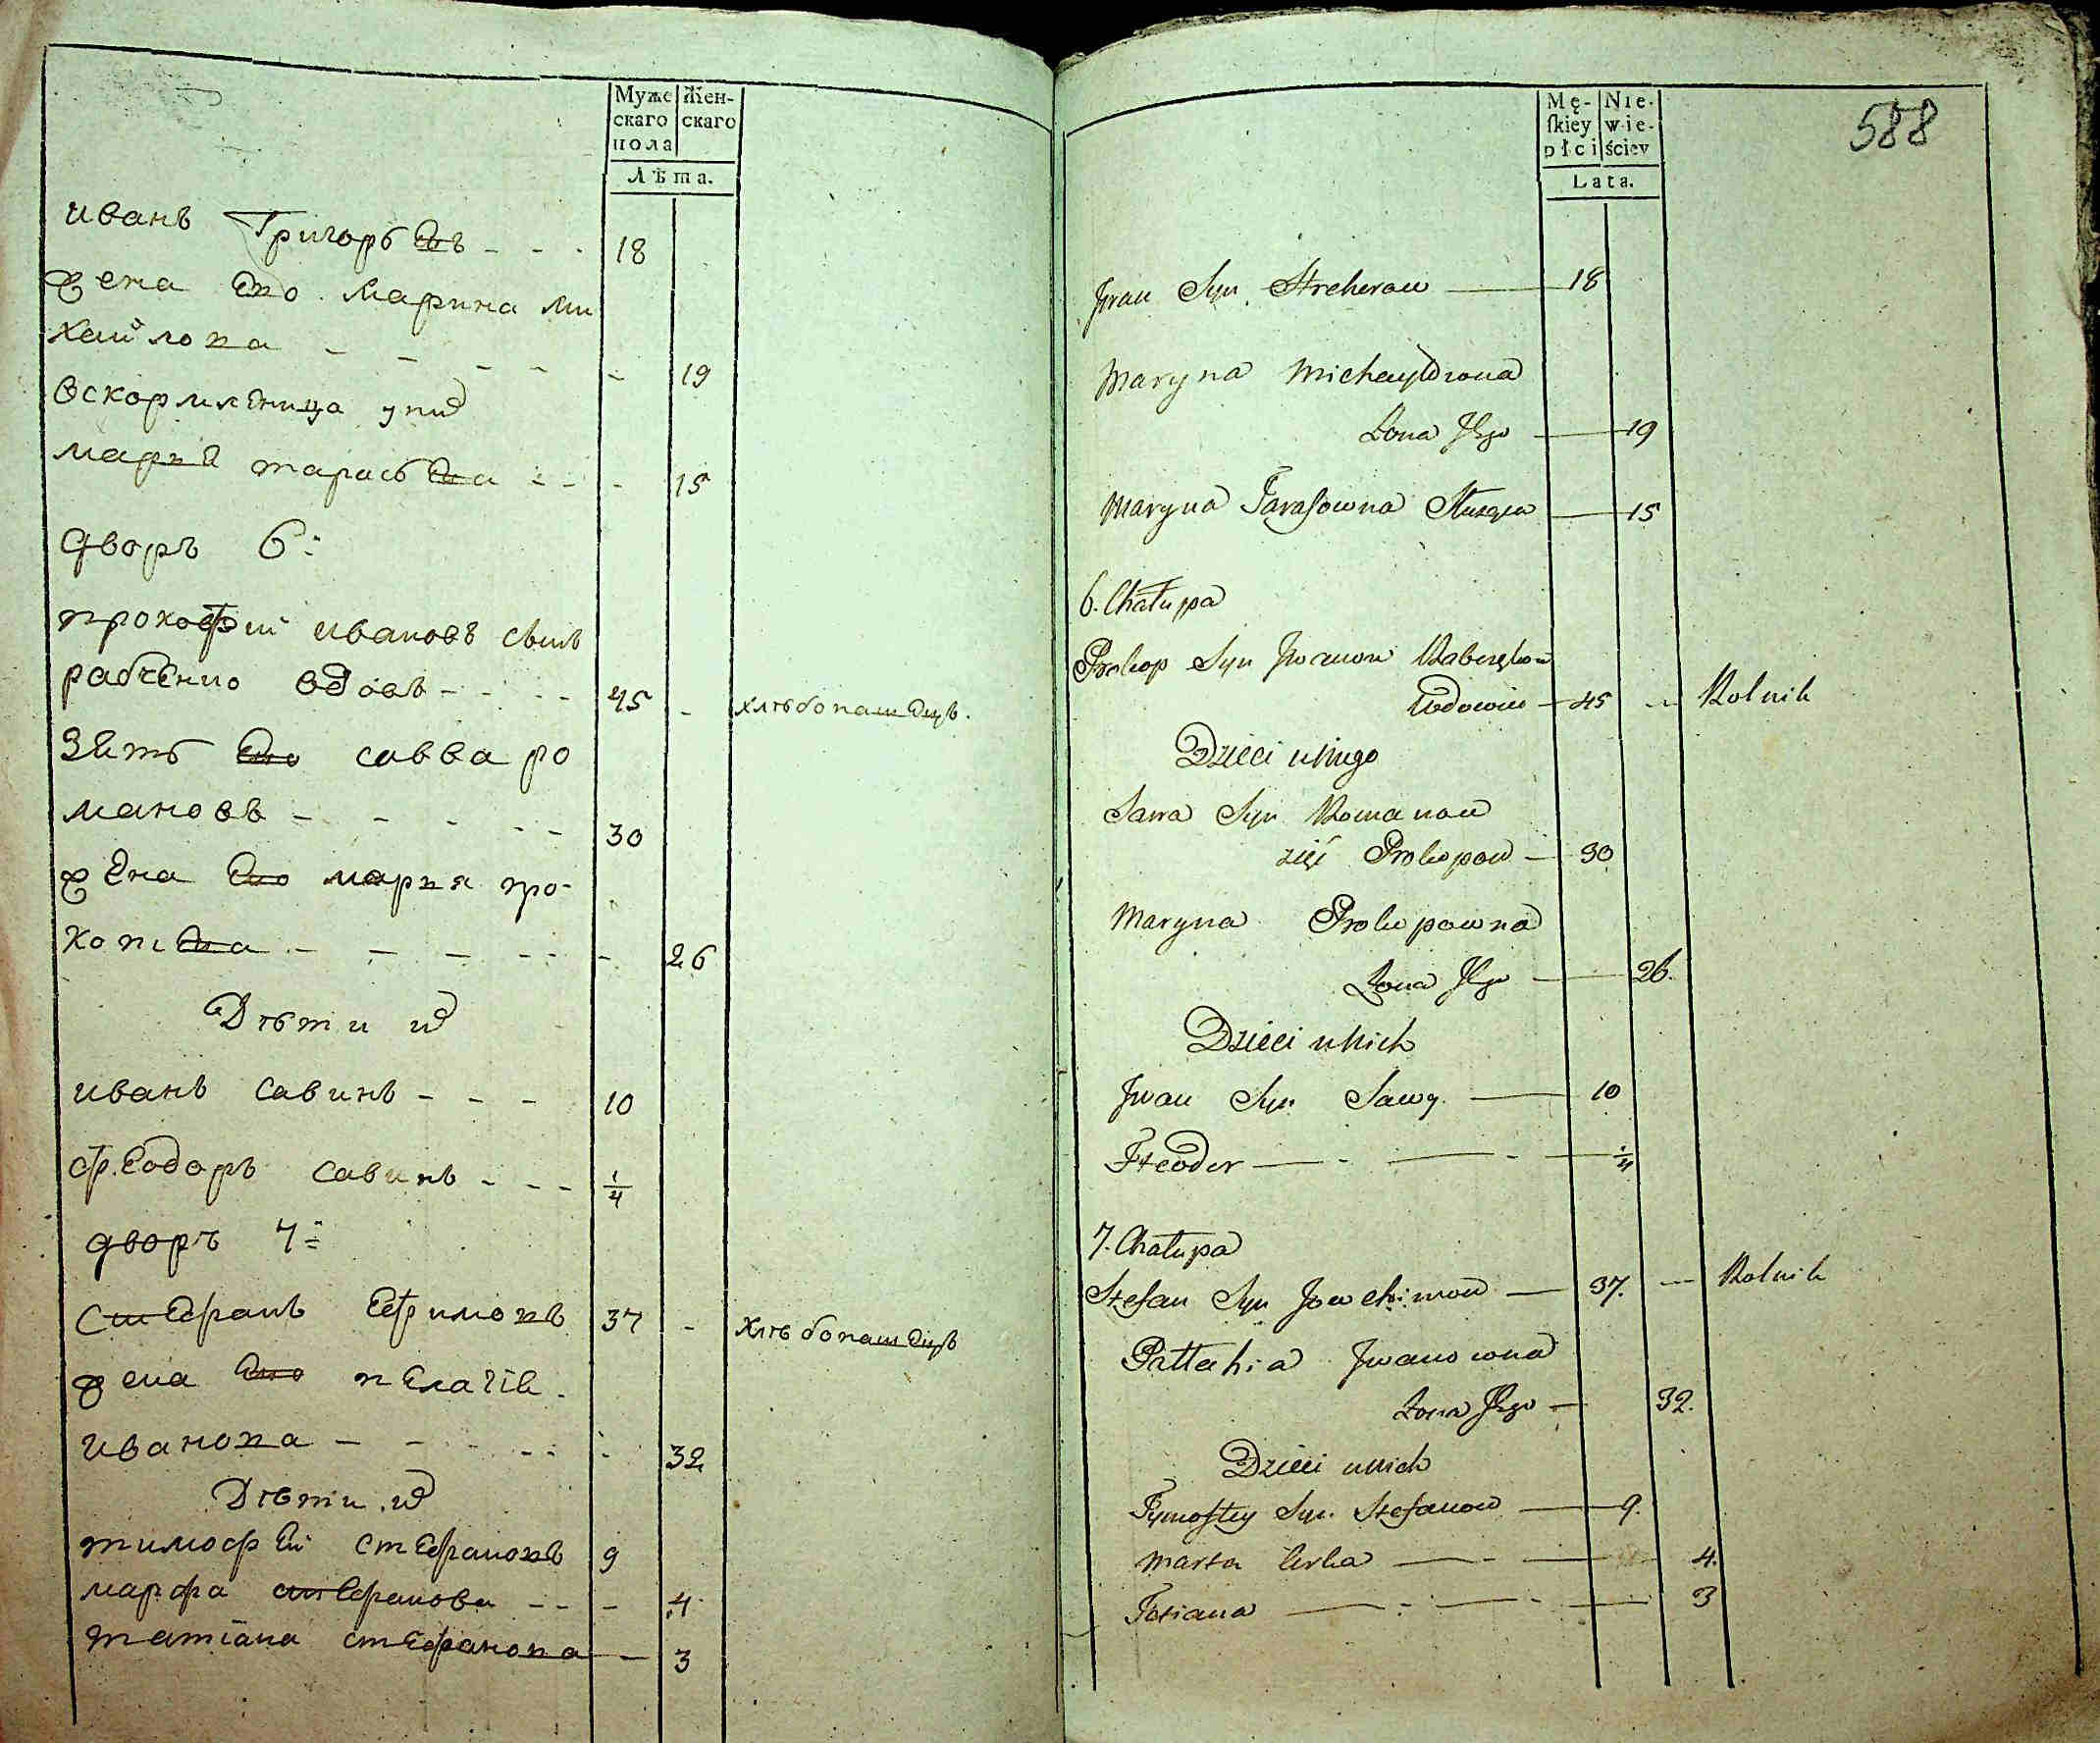 Муже
скаго
пола
Жен-
скаго
Лѣта.
иванъ Григорьевъ - - - 18
жена ево марина ми
хайлова - - - - - - 19
Вскормленица у них
марья тарасьева - - - 15
дворъ 6:
прокофий ивановъ сынъ
рабченко вдовъ - - - - 45 - хлѣбопашецъ.
Зять ево савва ро
мановъ - - - - - 30
жена ево мария про-
копиева - - - - - - 26
Дѣти их
иванъ савинъ - - - 10
федоръ савинъ - - - 1/4
дворъ 7:
Стефанъ Ефимовъ 37 - хлѣбопашецъ
жена ево пелагия
иванова - - - - - - 32
Дѣти их
тимофей стефановъ 9
марфа стефанова - - - 4
татиана стефанова - 3
Mę-
ſkiey
płci
Nie-
wie-
ściey
Lata.
588
Jwan Syn — 18
Maryna Michayłowna
Zona Jego — 19
Maryna Tarasowna — 15
6. Chałupa
Prokop Syn Jwanow
Wdowiec — 45 — Rolnik
Dzieci u niego
Sawa Syn Romanow
zięć Prokopow — 30
Maryna Prokopowna
Zona Jego — 26.
Dzieci u nich
Jwan Syn Sawy. — 10
Fteodor — - — - — 1/4
7. Chałupa
Stefan Syn Jowchimow — 37. — Rolnik
Pallahia Jwanowna
Zona Jego — 32.
Dzieci u nich
Tymoftey Syn Stefanow — 9.
Marta Corka — - — 4.
Tatiana — - — - — 3